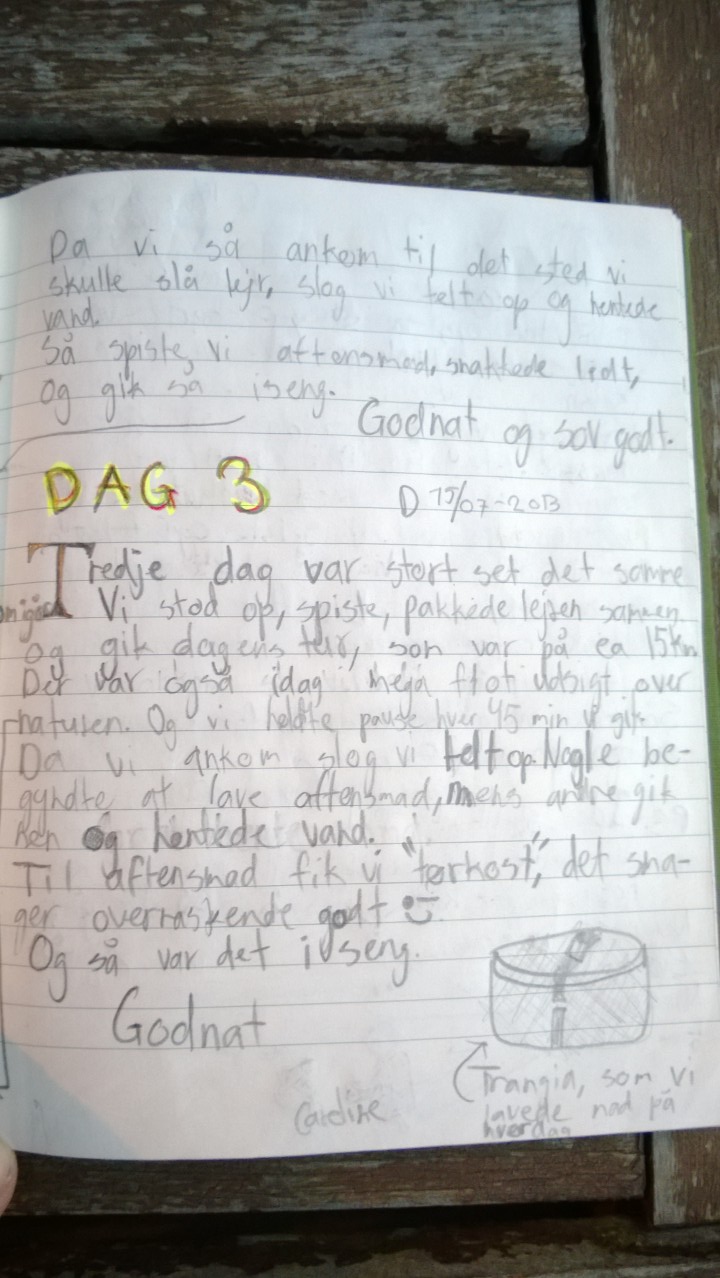 Da vi så ankom til det sted vi
skulle slå lejr, slog vi telt op og hentede
vand.
Så spiste vi aftensmad, snakkede lidt,
og gik så iseng.
Godnat og sov godt.
DAG 3
D 15/07-2013
Tredje dag var stort set det samme
Vi stod op, spiste, pakkede lejren sammen
og gik dagens tur, som var på ca 15km
Der var også idag mega flot udsigt over
naturen. Og vi holdte pause hver 45 min vi gik.
Da vi ankom slog vi telt op. Nogle be-
gyndte at lave aftensmad, mens andre gik
hen og hentede vand.
Til aftensmad fik vi "tørkost", det sma-
ger overraskende godt
Og så var det i seng.
Godnat
Trangia, som vi
lavede mad på
hverdag
Caroline